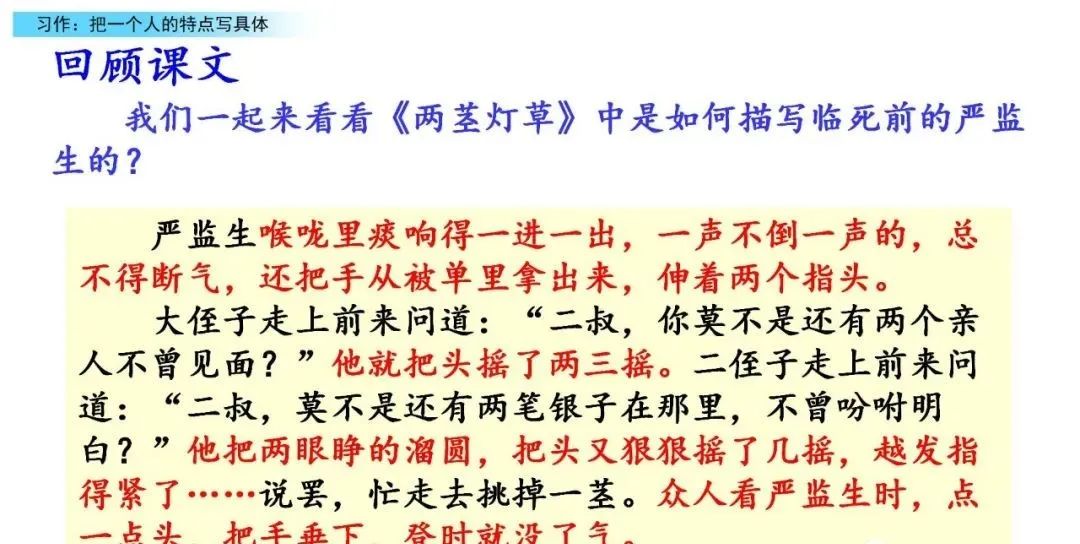 习作：把一个人的特点写具体
回顾课文
我们一起来看看《两茎灯草》中是如何描写临死前的严监
生的？
严监生喉咙里痰响得一进一出，一声不倒一声的，总
不得断气，还把手从被单里拿出来，伸着两个指头。
大侄子走上前来问道：“二叔，你莫不是还有两个亲
人不曾见面？”他就把头摇了两三摇。二侄子走上前来问
道：“二叔，莫不是还有两笔银子在那里，不曾吩咐明
白？”他把两眼睁的溜圆，把头又狠狠摇了几摇，越发指
得紧了……说罢，忙走去挑掉一茎。众人看严监生时，点
一点头，把手垂下，登时就没了气。